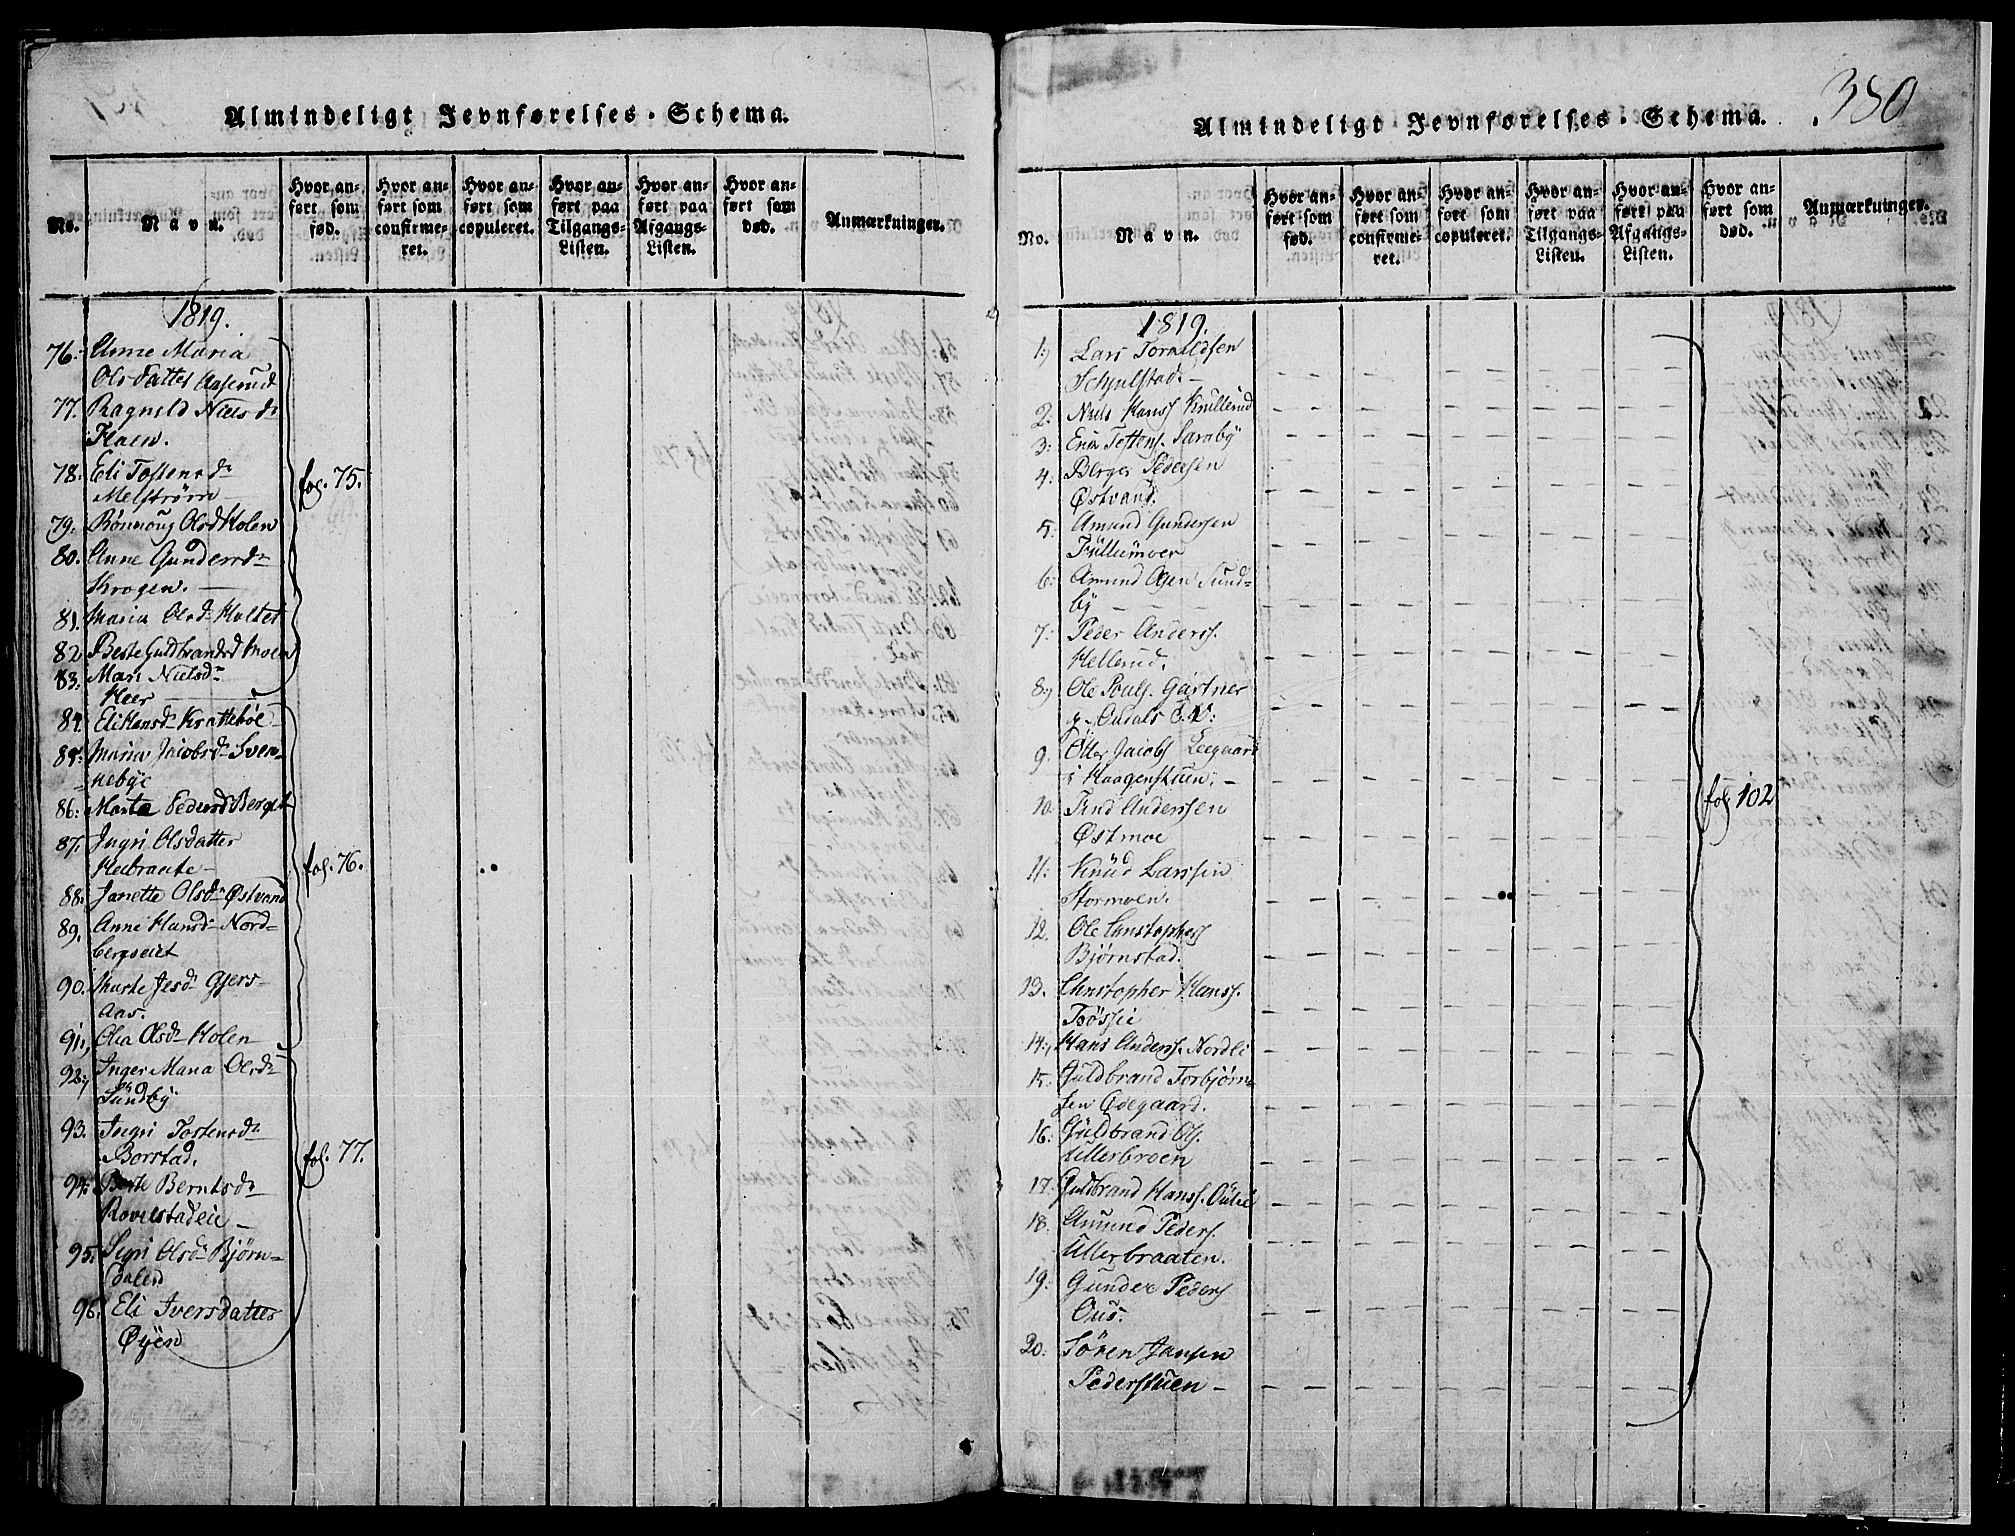 Almindeligt Jevnførelses-Schema.
No.
Navn.
Hvor anført som fød.
Hvor anført som confirmeret.
Hvor anført som copuleret.
Hvor anført paa Tilgangs-Listen.
Hvor anført paa Afgangs-Listen.
Hvor anført som død.
Anmærkninger.
1819.
76. Anne Maria
Olsdatter Aaserud
77. Ragnild Nielsdr
Floen.
78. Eli Tostensdr
Melstrøm
79. Rønnoug Olsd Holen
80. Anne Gundersdr
Krogen.
81. Maria Olsdr Holtet
82 Beste Guldbrandsd Moen
83. Mari Nielsdr
Heer
fol. 75.
84. Eli Hansdr Krattebøe
85. Maria Jacobsdr Sven-
nebye
86. Marte Pedersd Berget
87. Ingri Olsdatter
88. Janette Olsdr Østvand
89. Anne Hansdr Nord-
bergseiet
90. Marte Jesdr Gjers-
Aas.
91. Olea Olsdr Holen
fol. 76.
92. Inger Maria Olsdr
Sundby.
93. Ingri Tostensdr
Borstad.
94. Berte Berntsdr
Rovelstadeie
95. Sigri Olsdr Bjørn-
dalen
96. Eli Iversdatter
Øyen
fol. 77.
Almindeligt Jevnførelses-Schema.
380
No.
Navn.
Hvor anført som fød.
Hvor anført som confirmeret.
Hvor anført som copuleret.
Hvor anført paa Tilgangs-Listen.
Hvor anført paa Afgangs-Listen.
Hvor anført som død.
Anmærkninger.
1819.
1. Lars Torkildsen
Schjulstad.
2. Niels Hanss Knillerud
3. Erik Tostens. Saraby
4. Berger Pedersen
Østvand.
5. Amund Gundersen
Trullumoer
6. Amund Olsen Sund-
by
7. Peder Anderss.
Hellerud.
8. Ole Pouls. Gartner
9. Otter Jacobs Leegaard
i Haagenstuen.
10. Trud Anderssen
Østmoe
11. Knud Larssen
Stormoen.
12. Ole Christophers
Bjørnstad.
13. Christopher Hanss.
14. Hans Anderss. Nordli
15. Guldbrand Torbjørn-
sen Ødegaard.
16. Guldbrand Ols.
Ullerbroen
17. Guldbrand Hanss. Oulie
18. Amund Peders.
Ullerbraaten.
19. Gunder Peders
Ous.
20. Søren Jansen
Pederstuen
fol. 102